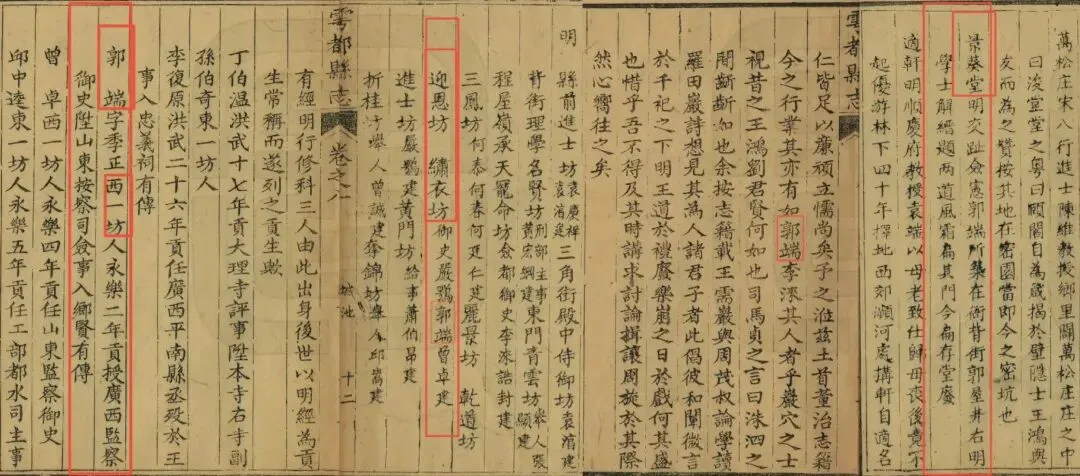 萬松庄宋八行進士陳維教鄉里闢萬松庄庄之中
曰浚堂堂之粤曰頤閣自為箴揭於壁隱士王鴻與
友而為之贊按其地在密園當即今之密坑也
景葵堂明交趾僉憲郭端所築在衙背街郭屋井右明
學士解縉題兩道風霜扁其門今扁存堂廢
適軒明順慶府教授袁端以母老致仕歸母喪後竟不
起優游林下四十年擇地西郊瀕河處搆軒自適名
雩都縣志
仁皆足以廉頑立懦尚矣予之涖茲土首董治志籍
今之行業其亦有如郭端李淶其人者乎巖穴之士
視昔之王鴻劉君賢何如也司馬貞之言曰洙泗之
間齗齗如也余按志籍載王需巖與周茂叔論學讀
羅田巖詩想見其為人諸君子者此倡彼和闡微言
於千祀之下明王道於禮廢樂崩之日於戲何其盛
也惜乎吾不得及其時講求討論揖讓周旋於其際
然心嚮往之矣
明
縣前進士坊袁慶祥袁淯建三角街殿中侍御坊袁淯建
衙街理學名賢坊刑部主事黃宏綱建東門青雲坊舉人張顯建
程屋嶺承天寵命坊僉都御史李淶誥封建
三鳳坊何泰何春何廷仁建麗景坊 乾道坊
迎恩坊 繡衣坊御史嚴鶚郭端曾卓建
進士坊嚴鶚建黃門坊給事蕭伯昂建
折桂坊舉人曾誠建奪錦坊舉人邱嵩建
雩都縣志 卷之八 城池 十二
有經明行修科三人由此出身後世以明經為貢
生常稱而遂列之貢生歟
丁伯溫洪武十七年貢大理寺評事陞本寺右寺副
孫伯奇東一坊人
李復原洪武二十六年貢任廣西平南縣丞殁於王
事入忠義祠有傳
郭端字季正西一坊人永樂二年貢授廣西監察
御史陞山東按察司僉事入鄉賢有傳
曾卓西一坊人永樂四年貢任山東監察御史
邱中逵東一坊人永樂五年貢任工部都水司主事